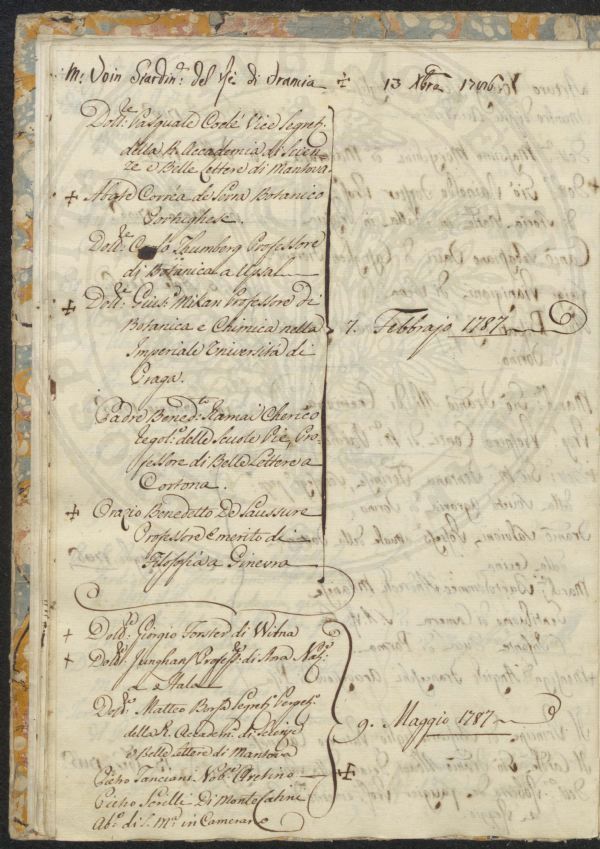 M.r Voin Giardin.e del Rè di Francia ÷ 13 Xbre 1786
Dott.re Pasquale Codè Vice Segret.
della R. Accademia di Scien-
ze e Belle Lettere di Mantova
Abate Correa de Serra Botanico
Portughese.
Dott.re Carlo Thumberg Professore
di Botanica a Upsal
Dott.re Gius.e Mikan Professore de
Botanica e Chimica nella
Imperiale Università di
Praga.
7. Febbrajo 1787
Padre Bened.to Cherico
Regol.e delle Scuole Pie, Pro-
fessore di Belle Lettere a
Cortona.
Orazio Benedetto De Saussure
Professore Emerito di
Filosofia a Ginevra
Dott.re Giorgio Forster di Wilna
Dott.re Junghans Profess.re di
a Hala
Dott.re Matteo Borsa Segret.o Perpet.o
della R. Accadem. di Scienze
e Belle Lettere di Mantova
9. Maggio 1787
Pietro Tanciani Nob.e Aretino
Pietro di
Ab.e di S. M.a in